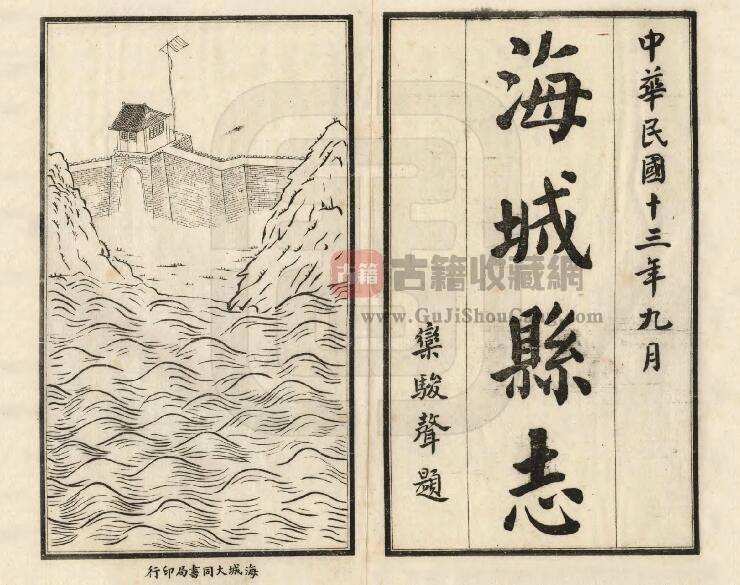 中華民國十三年九月
海城縣志
欒駿聲題
海城大同書局印行
古籍
古籍收藏網